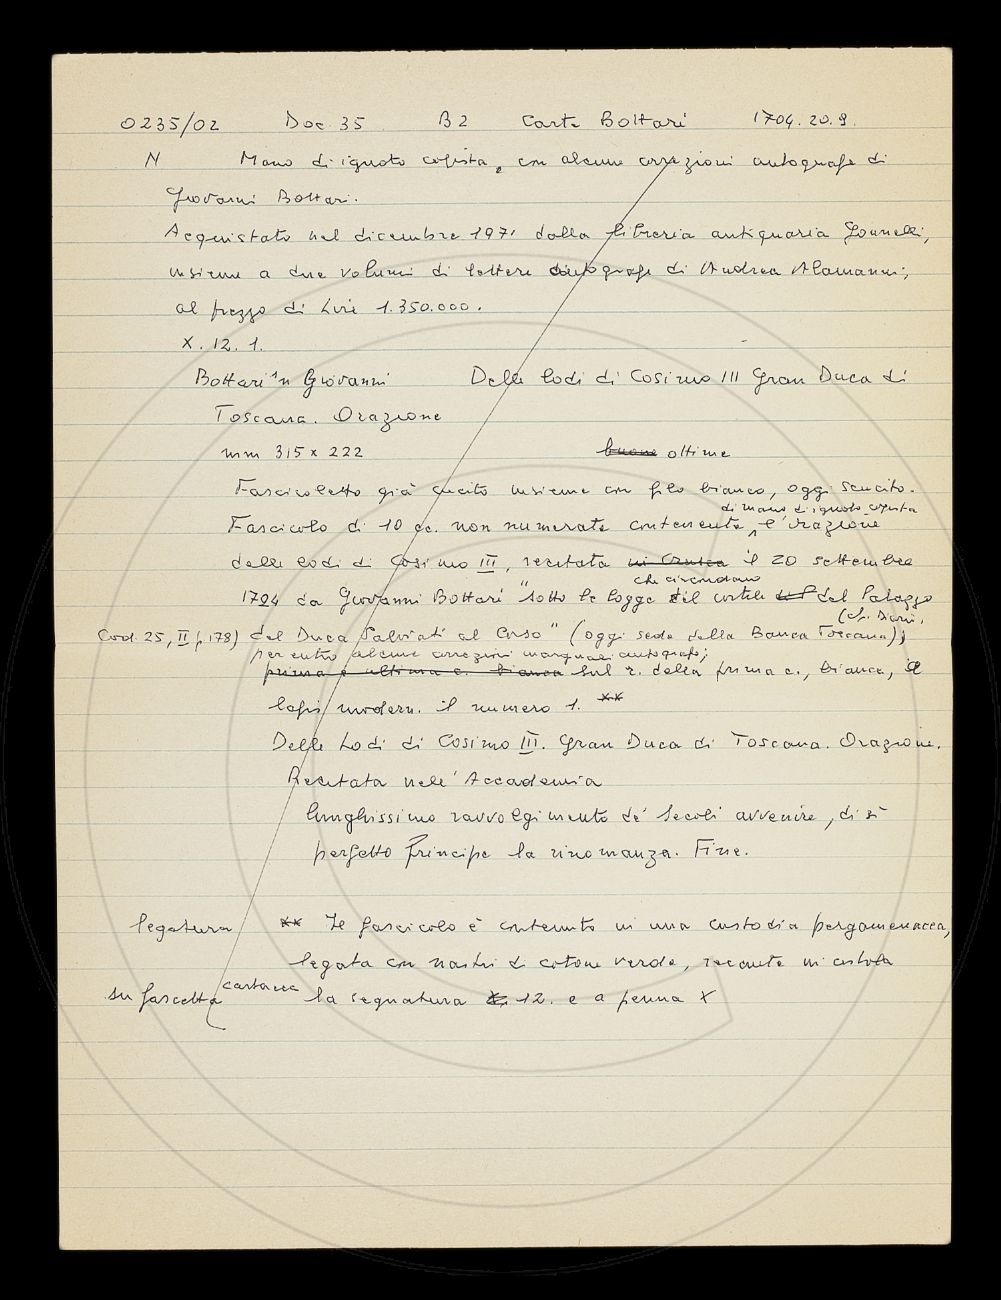 0235/02 Doc. 35 B2 Carte Bottari 1704. 20. 9.
N Mano di ignoto copista, con alcune correzioni autografe di
Giovanni Bottari.
Acquistato nel dicembre 1971 dalla libreria antiquaria Gonnelli,
insieme a due volumi di lettere autografe di Andrea Alamanni,
al prezzo di Lire 1.350.000.
X. 12. 1.
Bottari Giovanni Delle lodi di Cosimo III Gran Duca di
Toscana. Orazione
mm 315 x 222 buone ottime
Fascicoletto già cucito insieme con filo bianco, oggi scucito.
di mano d'ignoto copista
Fascicolo di 10 cc. non numerate contenente l'orazione
delle lodi di Cosimo III, recitata in Crusca il 20 settembre
che circondano
1704 da Giovanni Bottari "sotto le logge il cortile del del Palazzo
(cf. Diari,
Cod. 25, II, p. 178) del Duca Salviati al Corso" (oggi sede della Banca Toscana);
presenta alcune correzioni marginali autografe;
prima e ultima c. bianca sul r. della prima c., bianca, a
lapis modern. il numero 1. **
Delle Lodi di Cosimo III. Gran Duca di Toscana. Orazione.
Recitata nell'Accademia
lunghissimo ravvolgimento de' Secoli avvenire, di sì
perfetto Principe la rinomanza. Fine.
legatura ** Il fascicolo è contenuto in una custodia pergamenacea,
legata con nastri di cotone verde, recante in costola
su fascetta cartacea la segnatura X. 12. e a penna X